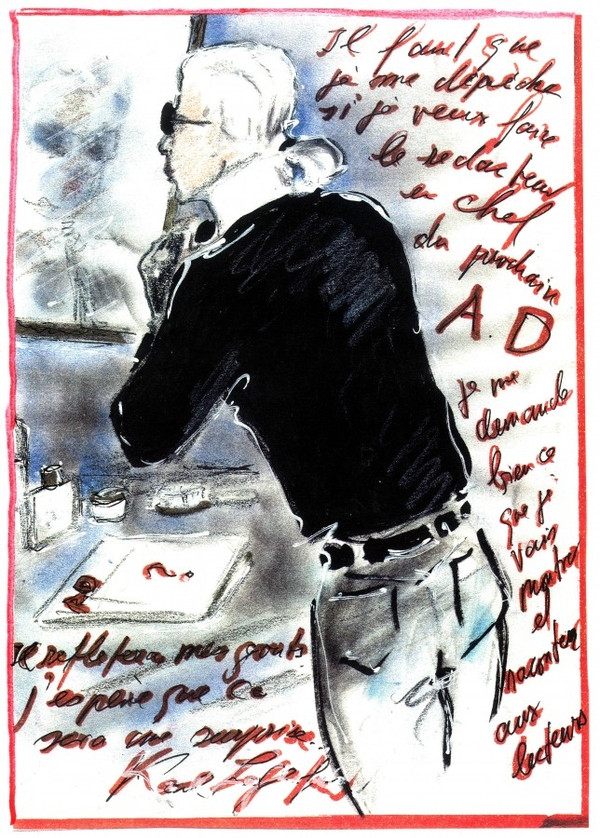 Il faut que
je me dépêche
si je veux faire
le redacteur
en chef
du prochain
A.D
je me
demande
bien ce
que je
vais
montrer
et
raconter
aux
lecteurs
Il refletera mes gouts
j'espere que ca
sera une surprise.
Karl Lagerfeld